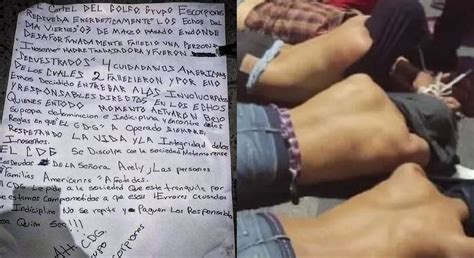 El CARTEL DEL GOLFO GRUPO ESCORPIONES
REPRUEBA ENERGETICAMENTE LOS ECHOS DEL
DIA VIERNES 03 DE MARZO PASADO EN DONDE
DESAFORTUNADAMENTE FALLECIO UNA PERSONA
INOSENTE MADRE TRABAJADORA Y FUERON
SECUESTRADOS 4 CIUDADANOS AMERICANOS
DE LOS CUALES 2 FALLECIERON Y POR ELLO
EMOS DECIDIDO ENTREGAR A LOS INVOLUCRADOS
Y RESPONSABLES DIRECTOS EN LOS ECHOS
QUIENES EN TODO MOMENTO ACTUARON BAJO
SU PROPIA DETERMINACION E INDICIPLINA Y ENCONTRA DE LAS
REGLAS EN LAS QUE EL CDG A OPERADO SIEMPRE
RESPETANDO LA VIDA Y LA INTEGRIDAD DE LOS
INOSENTES.
EL CDG SE DISCULPA CON LA SOCIEDAD DE MATAMOROS
DE LA SEÑORA Arely, Y LAS PERSONAS
Y FAMILIAS AMERICANAS AFECTADAS.
EL CDG LE PIDE A LA SOCIEDAD QUE ESTE TRANQUILA POR
QUE ESTAMOS COMPROMETIDOS A QUE ESOS ERRORES CAUSADOS
POR INDICIPLINA NO SE REPITAN Y PAGUEN LOS RESPONSABLES
SEA QUIEN SEA!!!
ATT CDG
GRUPO
ESCORPIONES